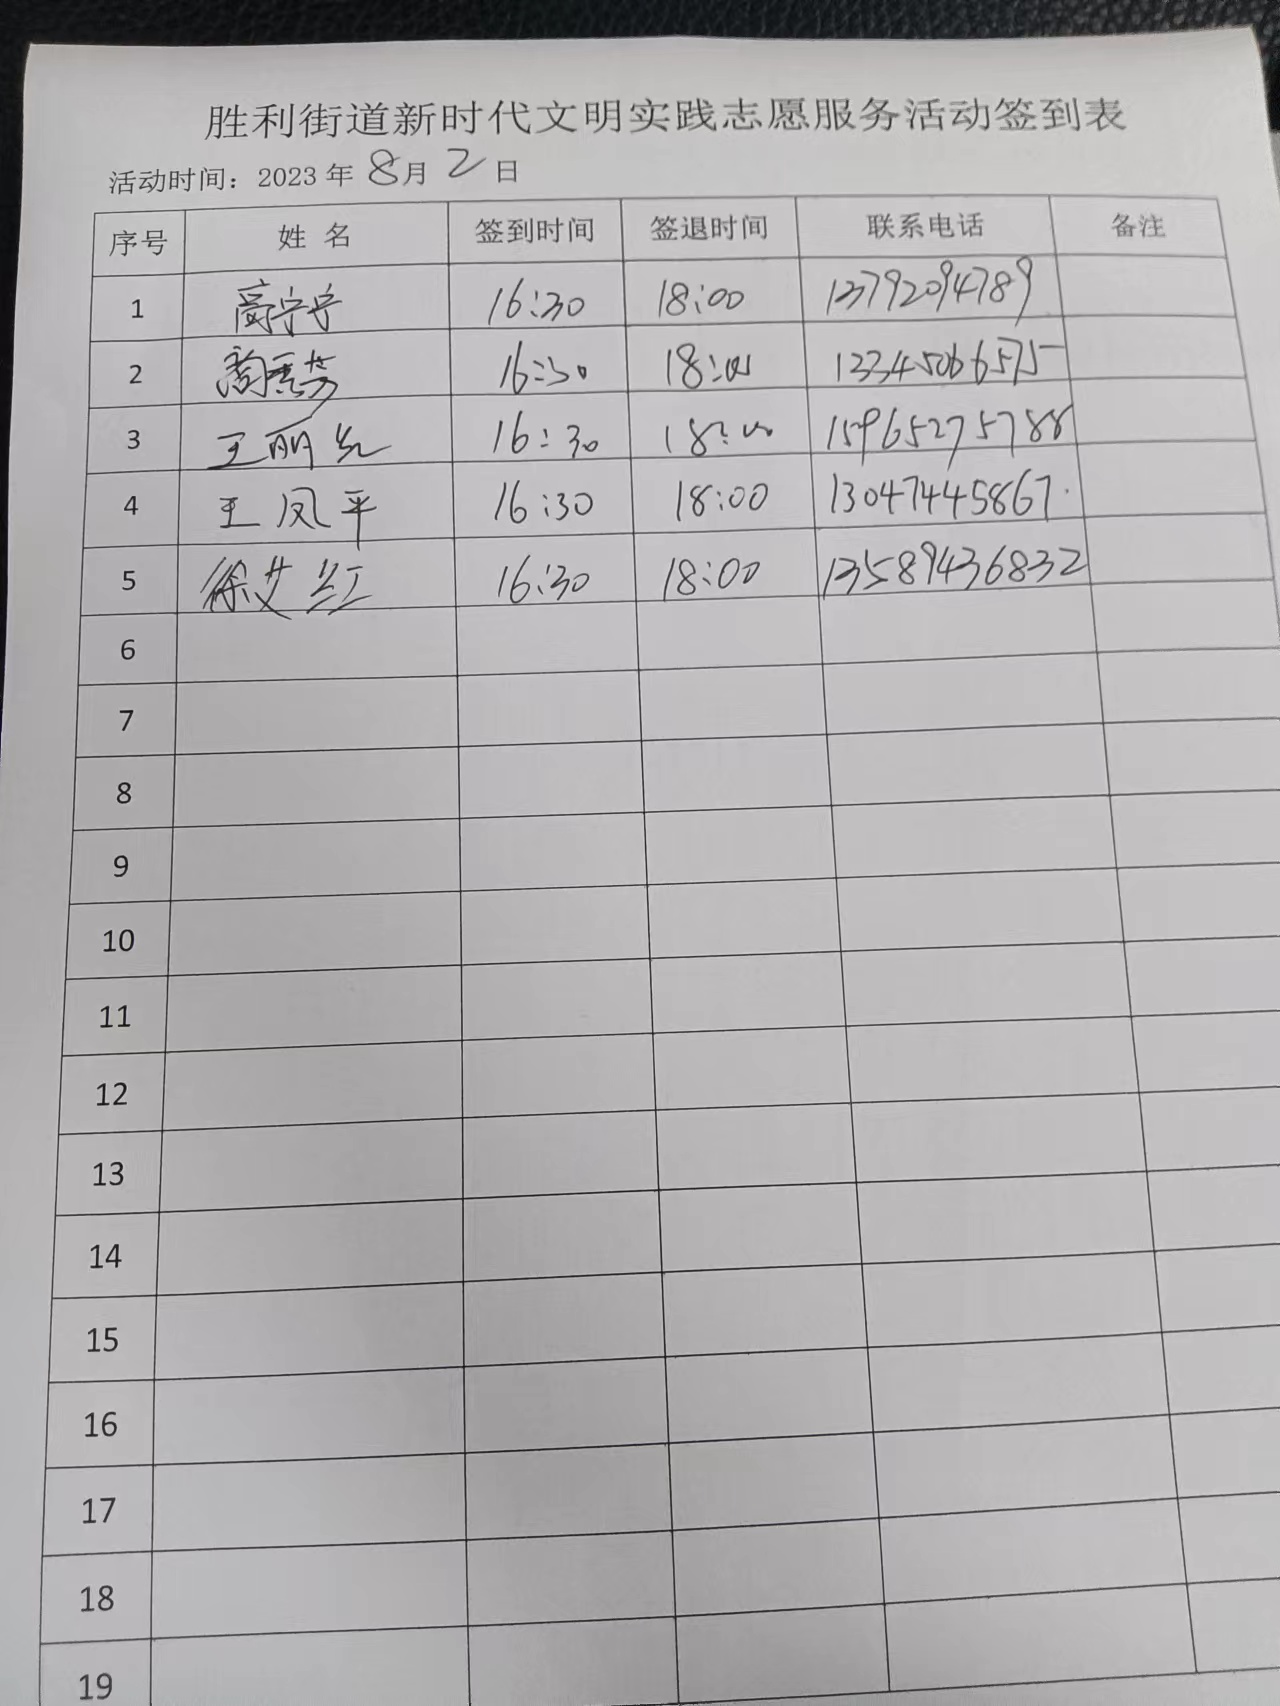 胜利街道新时代文明实践志愿服务活动签到表
活动时间：2023 年 8月 2 日
序号 姓 名 签到时间 签退时间 联系电话 备注
1 高宁宁 16:30 18:00 13792094789
2 16:30 18:00 13345066575
3 王丽红 16:30 18:00 15965275788
4 王凤平 16:30 18:00 13047445867
5 徐艾红 16:30 18:00 13589436832
6
7
8
9
10
11
12
13
14
15
16
17
18
19